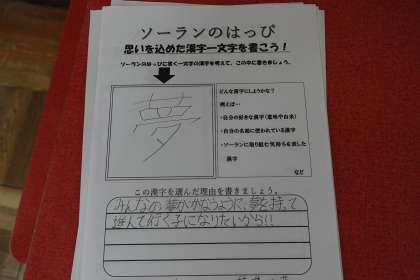 ソーランのはっぴ
思いを込めた漢字一文字を書こう！
ソーランのはっぴに書く一文字の漢字を考えて、この中に書きましょう。
夢
どんな漢字にしようかな？
例えば…
・自分の好きな漢字（意味や由来）
・自分の名前に使われている漢字
・ソーランに取り組む気持ちを表した
漢字
など
この漢字を選んだ理由を書きましょう。
みんなの夢がかなうように、夢を持って
進んで行く子になりたいから!!